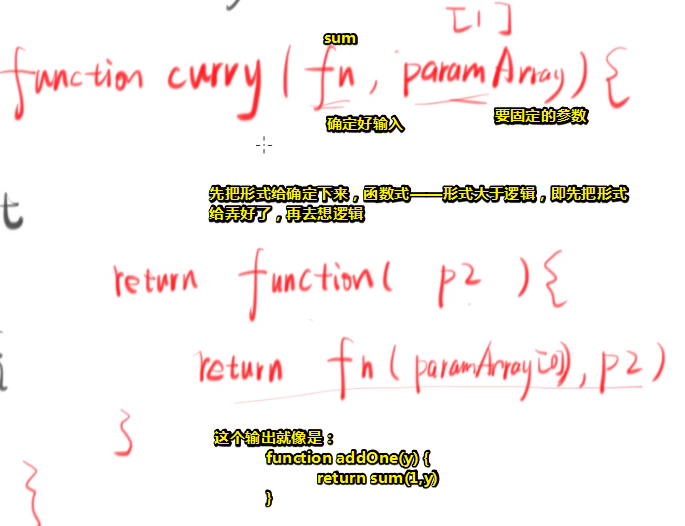 [1]
sum
function curry(fn, paramArray){
确定好输入
要固定的参数
先把形式给确定下来，函数式——形式大于逻辑，即先把形式
给弄好了，再去想逻辑
t
return function( p2 ){
return fn(paramArray[0]), p2)
}
这个输出就像是：
function addOne(y) {
return sum(1,y)
}
}